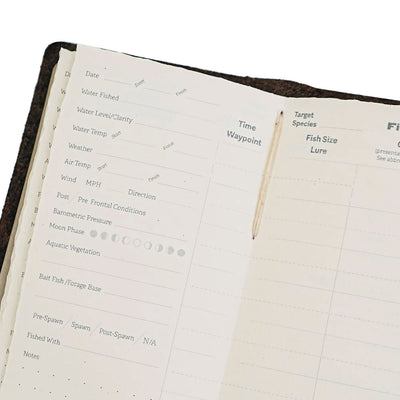 Date Start Finish
Water Fished
Water Level/Clarity
Water Temp Start Finish
Weather
Air Temp Start Finish
Wind MPH Direction
Post / Pre Frontal Conditions
Barometric Pressure
Moon Phase
Aquatic Vegetation
Bait Fish /Forage Base
Pre-Spawn / Spawn / Post-Spawn / N/A
Fished With
Notes
Time
Waypoint
Target
Species
Fish Size
Lure